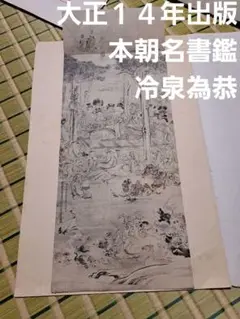 大正１４年出版
本朝名書鑑
冷泉為恭